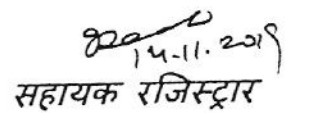 14.11.2019
सहायक रजिस्ट्रार